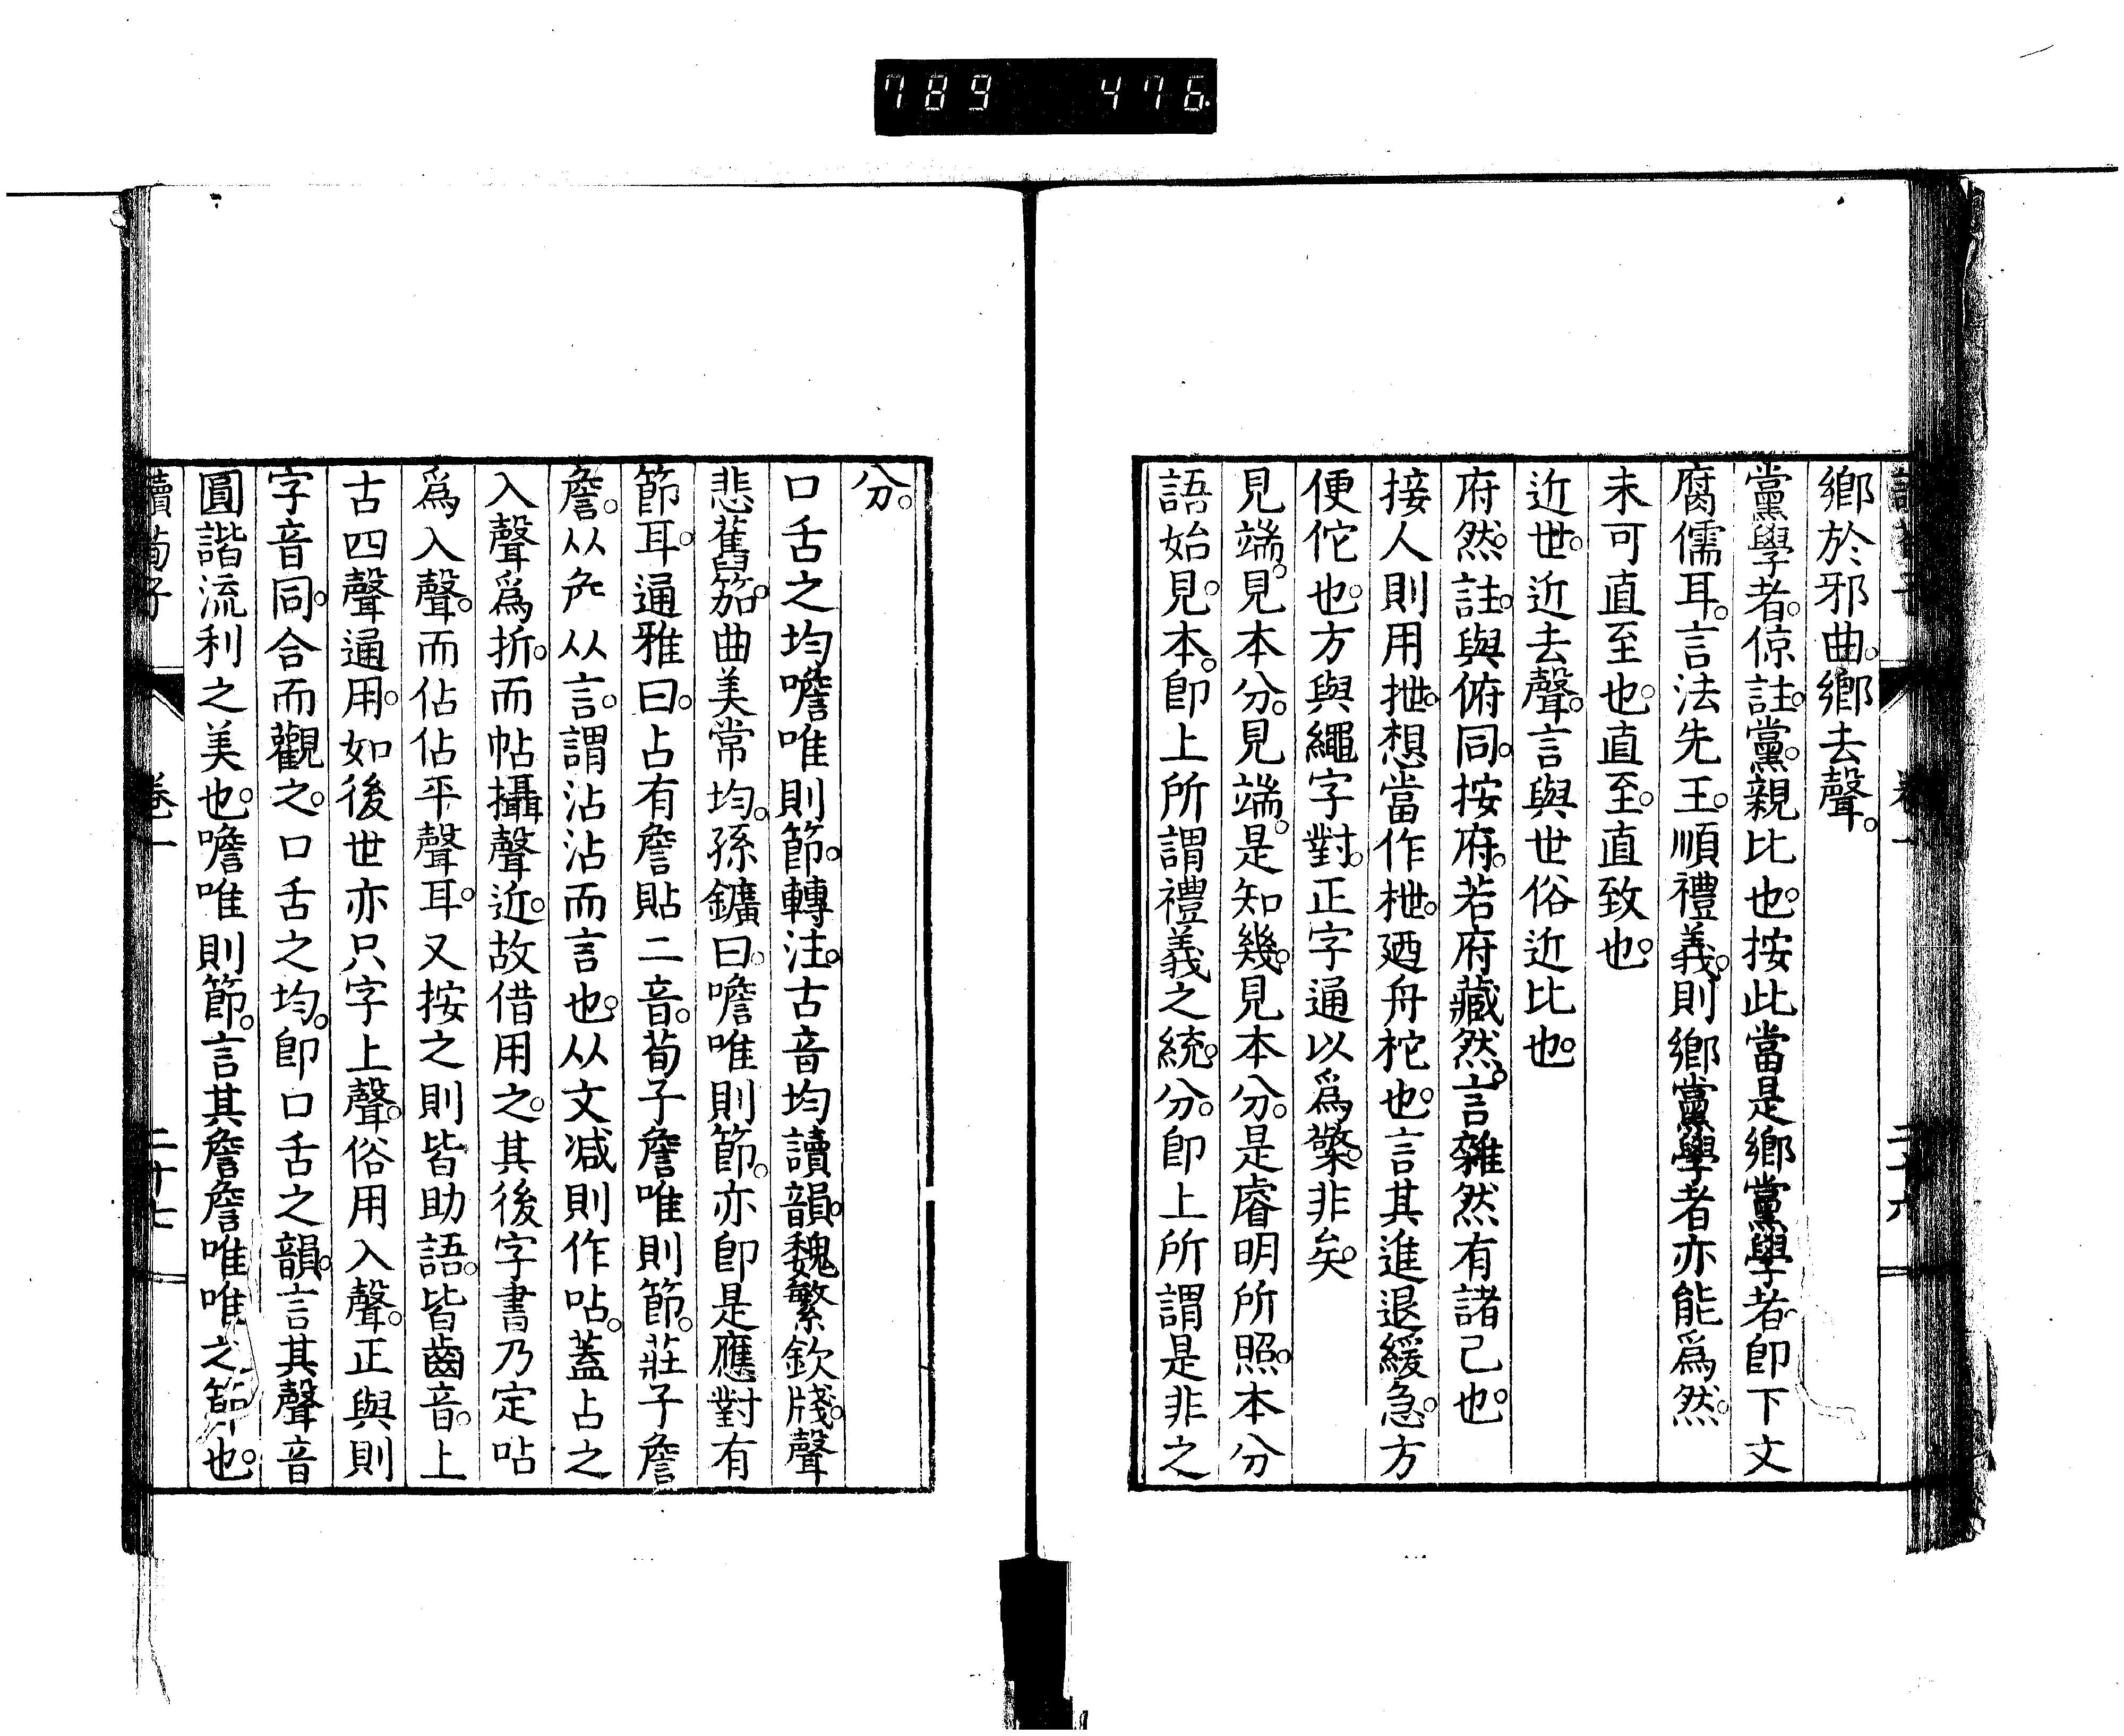 789 476
鄉於邪曲。鄉去聲。
黨學者。倞註。黨。親比也。按此當是鄉黨學者卽下文
腐儒耳。言法先王。順禮義。則鄉黨學者亦能爲然。
未可直至也。直至。直致也。
近世。近去聲。言與世俗近比也。
府然。註。與俯同。按府。若府藏然。言雜然有諸己也。
接人則用抴。想當作枻。廼舟柁也。言其進退緩急。方
便佗也。方與繩字對。正字通以爲檠。非矣。
見端。見本分。見端。是知幾。見本分。是睿明所照。本分
語始見。本。卽上所謂禮義之統。分。卽上所謂是非之
分。
口舌之均噡唯則節。轉注。古音均讀韻。魏繁欽牋。聲
悲舊笳。曲美常均。孫鑛曰。噡唯則節。亦卽是應對有
節耳。通雅曰。占有詹貼二音。荀子詹唯則節。莊子詹
詹。从厃从言。謂沾沾而言也。从文減則作呫。蓋占之
入聲爲折。而帖攝聲近。故借用之。其後字書乃定呫
爲入聲。而佔佔平聲耳。又按之則皆助語。皆齒音。上
古四聲通用。如後世亦只字上聲。俗用入聲。正與則
字音同。合而觀之。口舌之均。卽口舌之韻。言其聲音
圓諧流利之美也。噡唯則節。言其詹詹唯唯之節也。
讀荀子 卷一 二十七